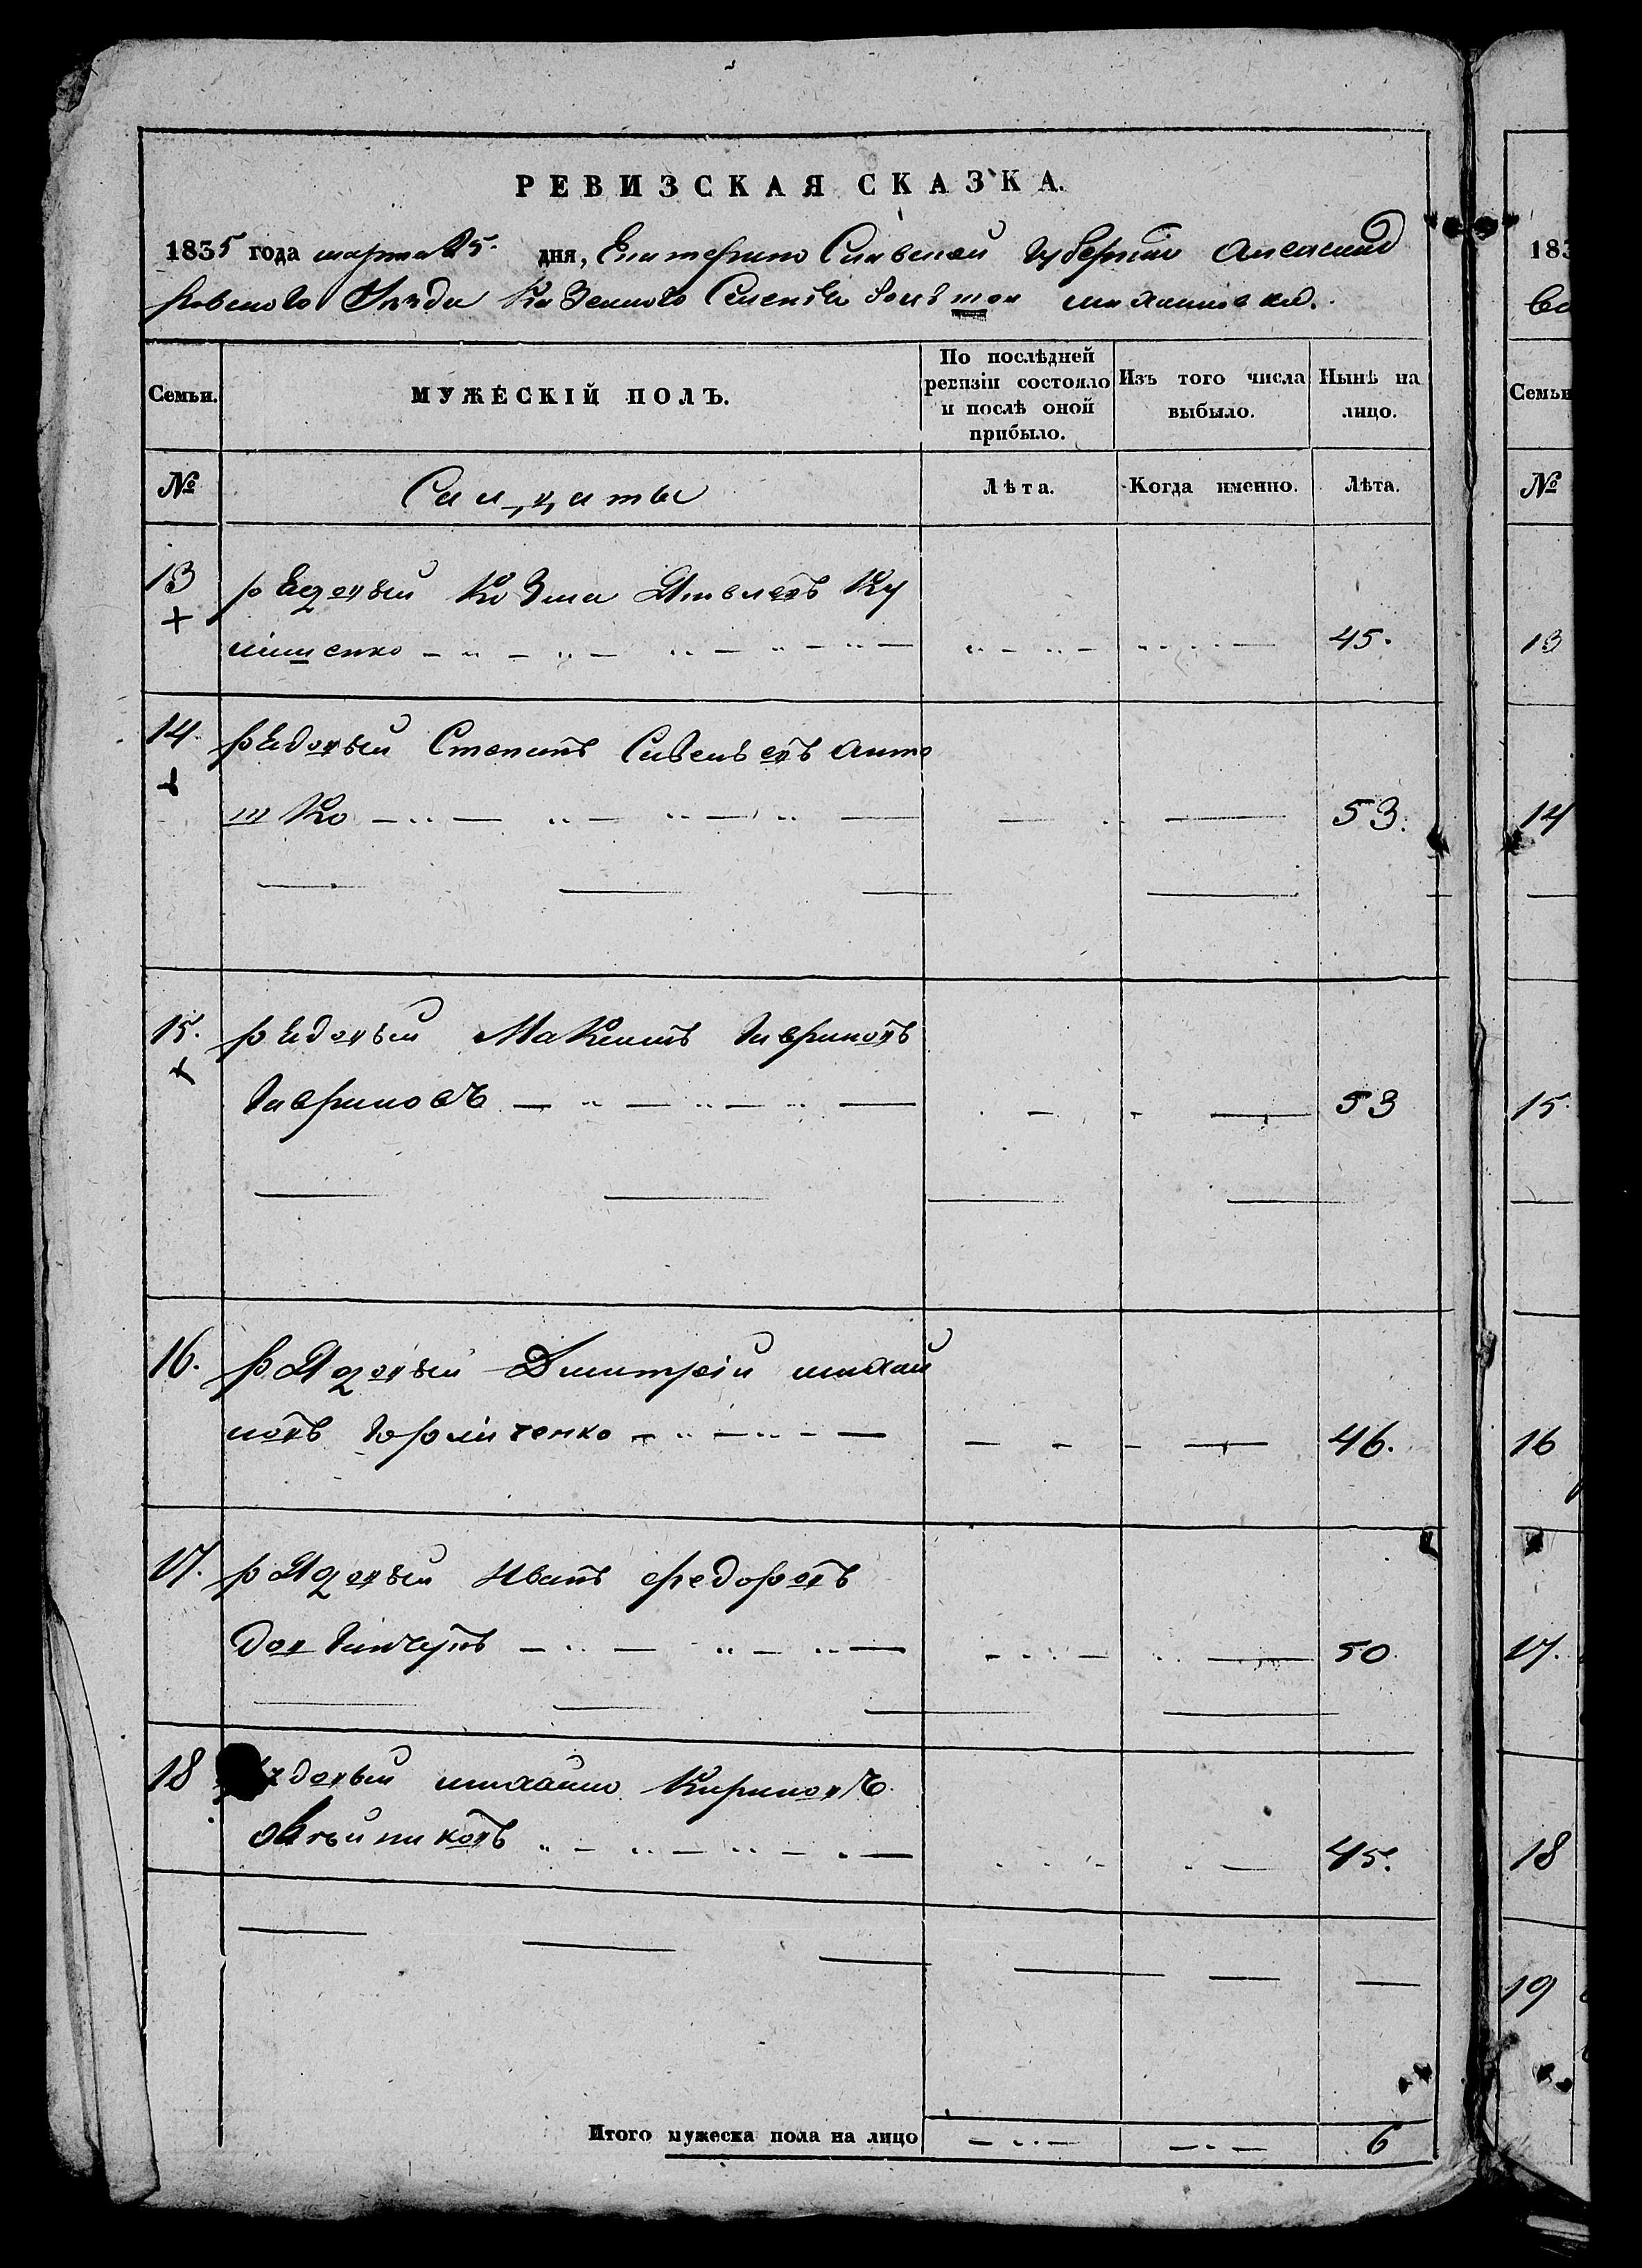 РЕВИЗСКАЯ СКАЗКА.
1835 года марта 25. дня, Екатерино Славской губернии Александ
ровского уезда Казенного Селения Больш михаиловки.
Семьи.
МУЖЕСКІЙ ПОЛЪ.
По послѣдней ревизіи состояло и послѣ оной прибыло.
Изъ того числа выбыло.
Нынѣ на лицо.
№
Салдаты
Лѣта.
Когда именно.
Лѣта.
13
рядовый Козма Ку
45.
14.
рядовый Степанъ Савельевъ Анто
шко
53.
15.
рядовый Максимъ Гавриловъ
Гавриловъ
53
16.
рядовый Дмитрій михай
ловъ
46.
17.
рядовый Иванъ Федоровъ
50.
18
рядовый михайло Кириловъ
овчыниковъ
45.
Итого мужеска пола на лицо
6
183
Семьи
№
13
14
15.
16
17.
18
19